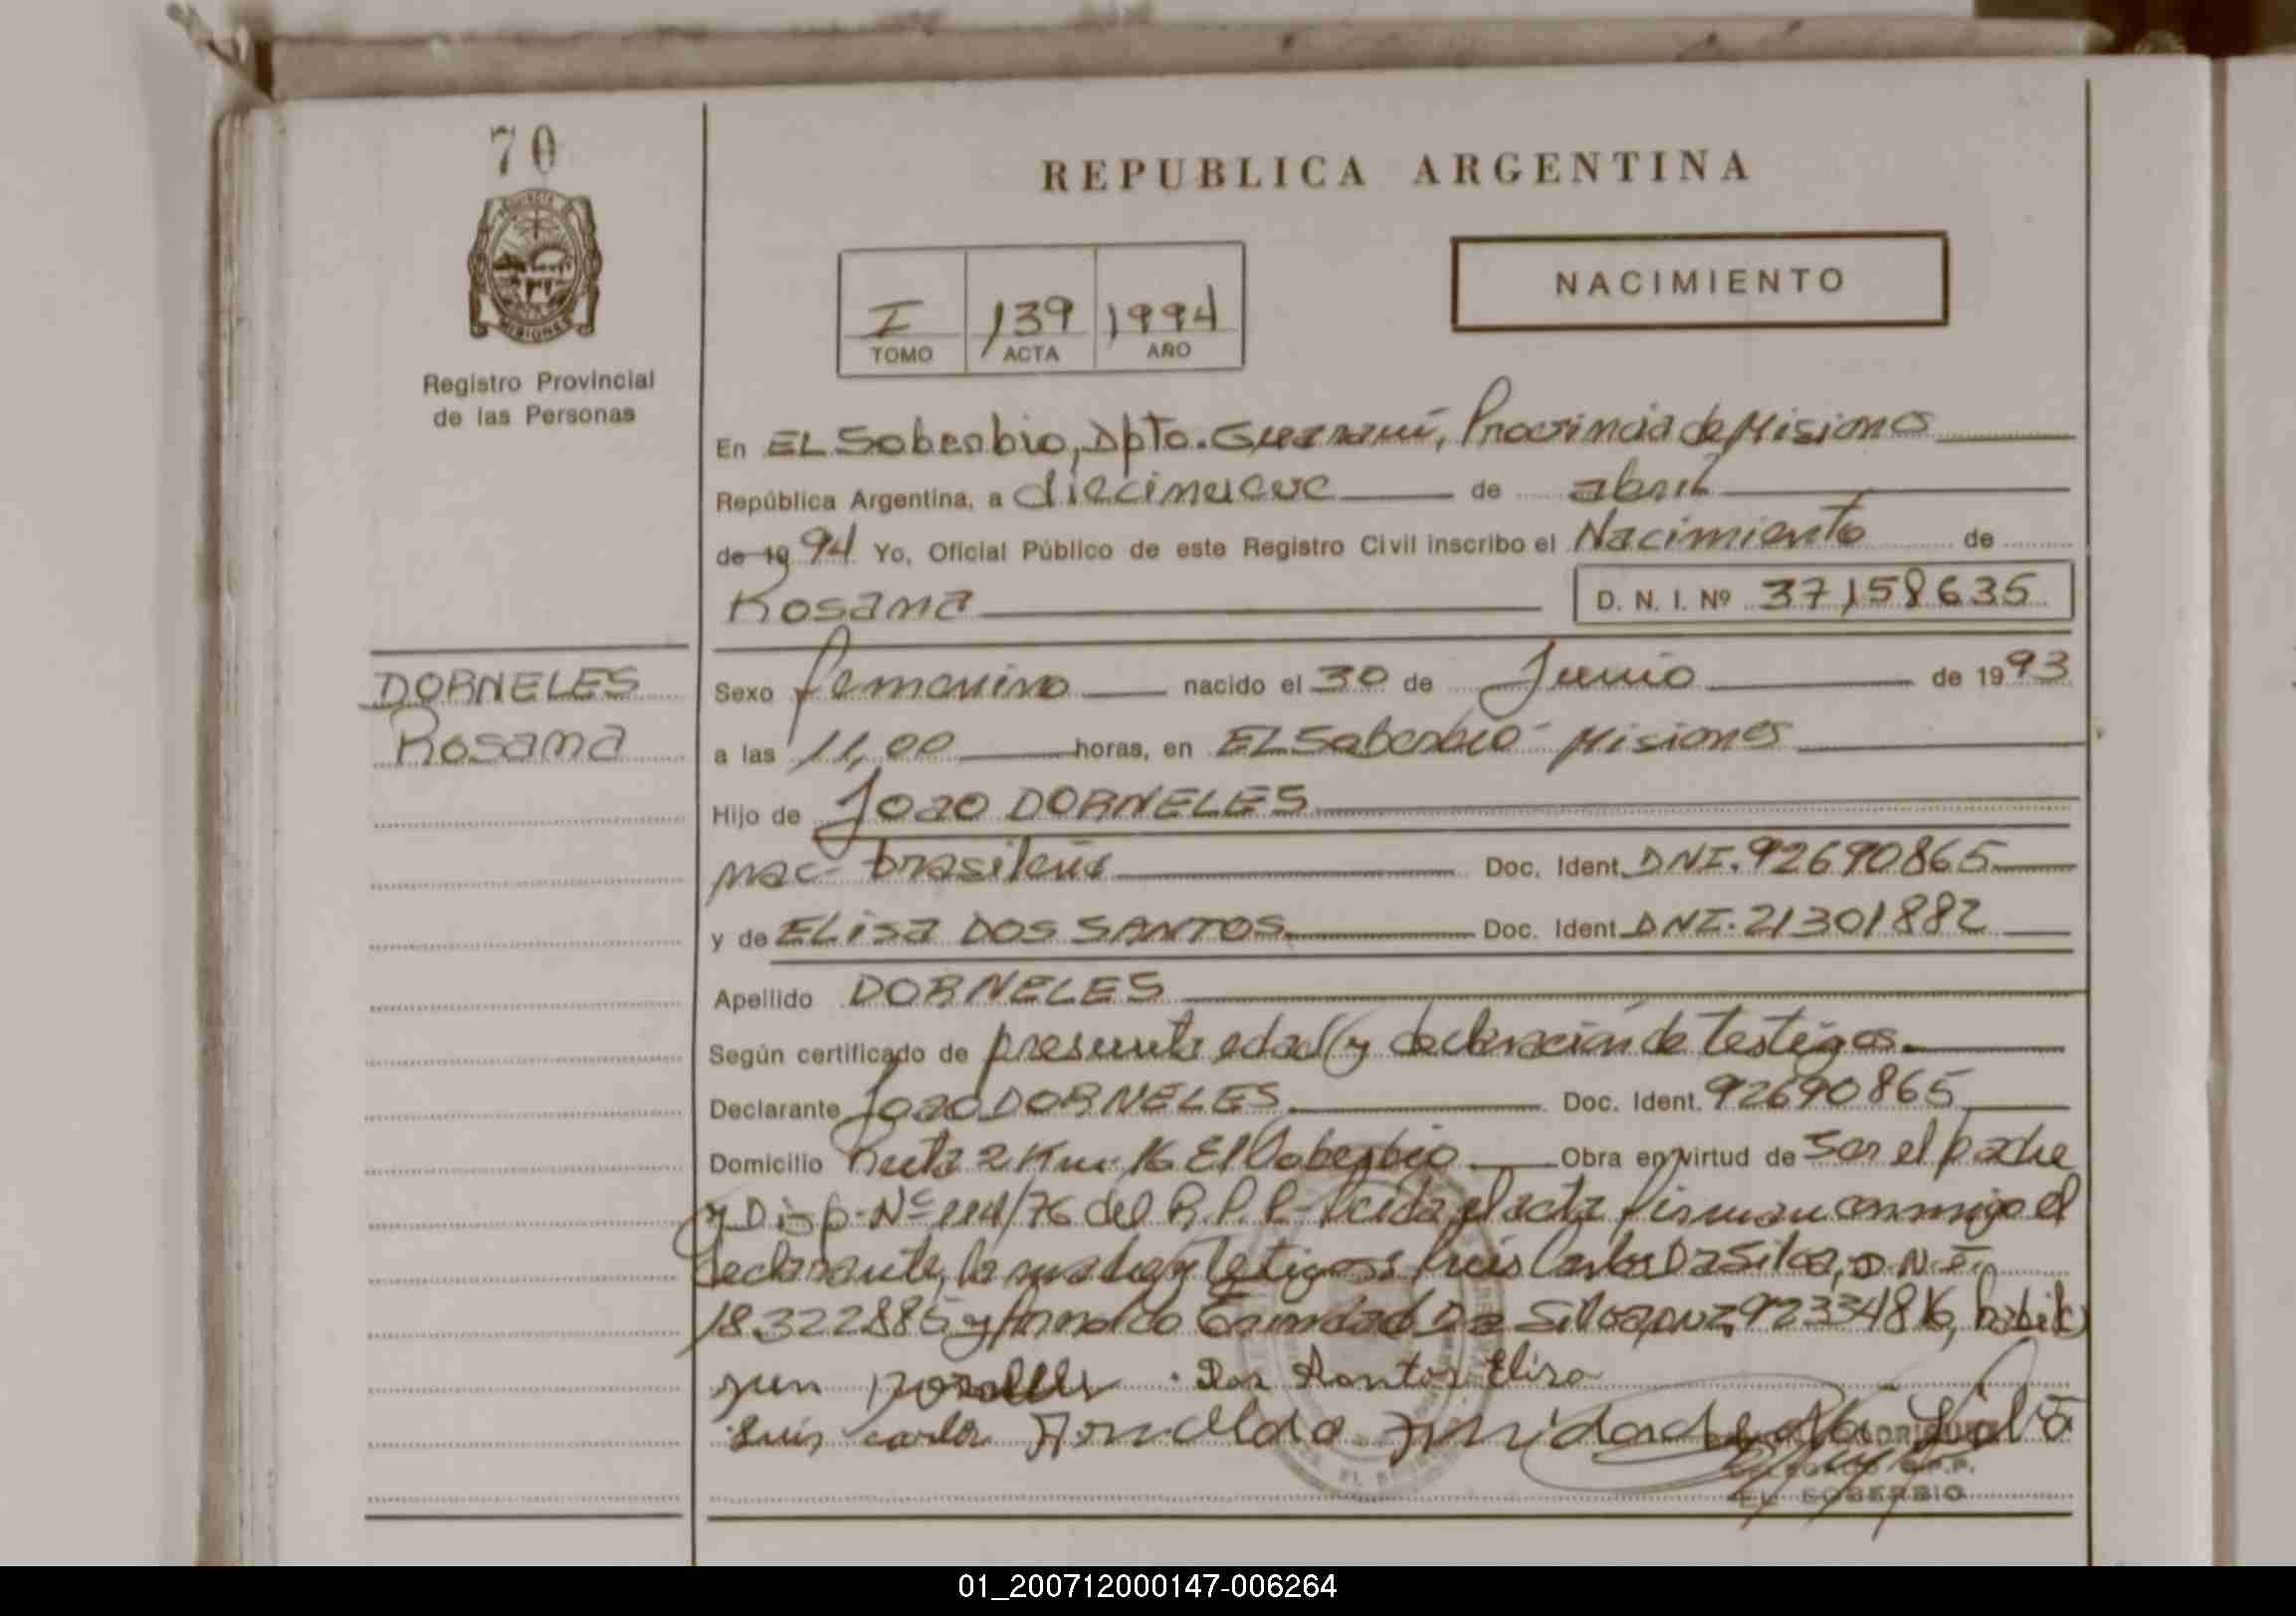 70
PROVINCIA DE
MISIONES
Registro Provincial
de las Personas
REPUBLICA ARGENTINA
NACIMIENTO
I 139 1994
TOMO ACTA AÑO
En EL Soberbio, Dpto. Guaraní, Provincia de Misiones
República Argentina, a diecinueve de abril
de 19 94 Yo, Oficial Público de este Registro Civil inscribo el Nacimiento de
Rosana D. N. I. Nº 37158635
DORNELES
Rosana
Sexo femenino nacido el 30 de Junio de 1993
a las 11,00 horas, en EL Soberbio Misiones
Hijo de Joao DORNELES
nac brasileña Doc. Ident. DNI. 92690865
y de ELisa DOS SANTOS Doc. Ident. DNI. 21301882
Apellido DORNELES
Según certificado de presunta edad y declaración de testigos.
Declarante Joao DORNELES Doc. Ident. 92690865
Domicilio Ruta 2 Km 16 El Soberbio Obra en virtud de ser el padre
y Disp. Nº 114/76 del R.P.P. Leida el acta firman conmigo el
declarante, la madre y testigos: Luis Carlos Da Silva, D.N.I.
18322885 y Arnoldo Da Silva 92334816,
Dos Santos Elisa
Luis Carlos Arnaldo da Silva
EL SOBERBIO
01_200712000147-006264